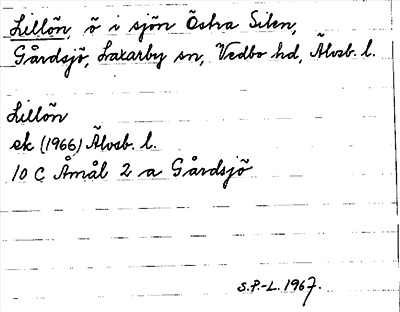 Lillön ö i sjön Östra Silen,
Gårdsjö, Laxarby sn, Vedbo hd, Älvsb. l.
Lillön
ek (1966) Älvsb. l.
10 C Åmål 2 a Gårdsjö
S.P.-L. 1967.